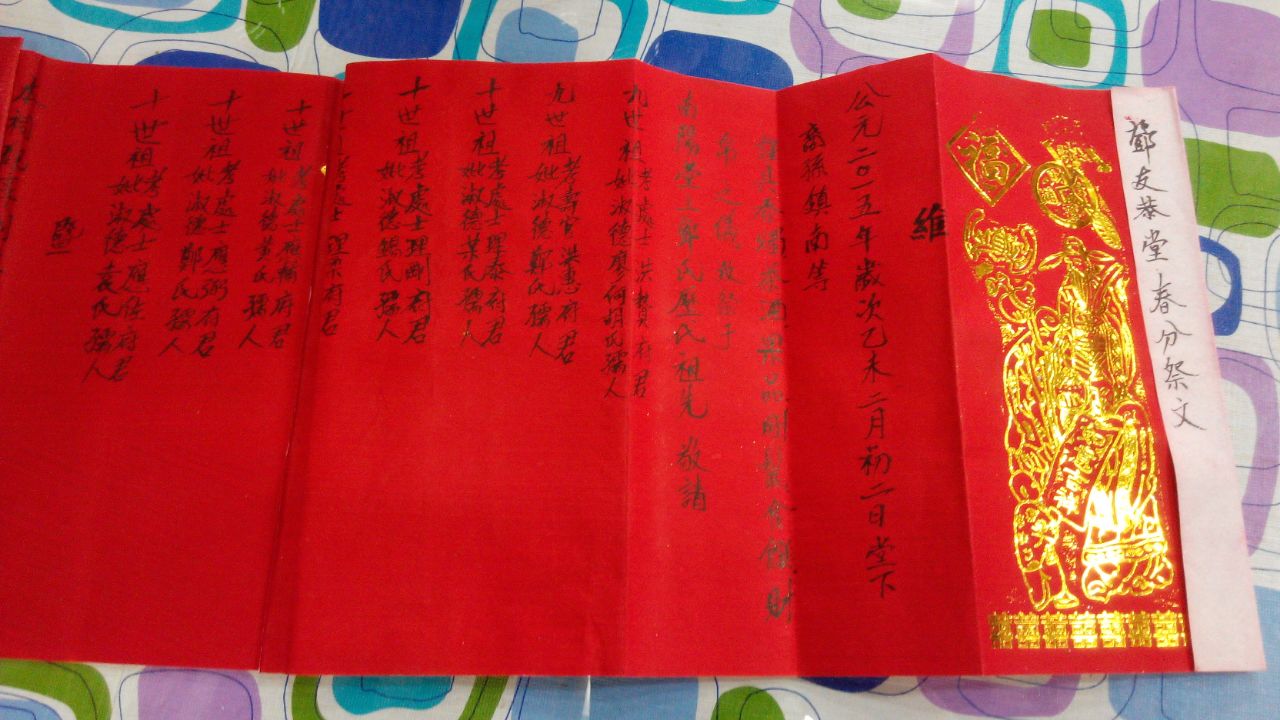 鄧友恭堂春分祭文
福
維
公元二〇一五年歲次乙未二月初二日堂下
裔孫鎮南等
謹具香燭茶酒果品剛鬣
帛之儀致祭于
南陽堂上鄧氏歷氏祖先敬請
九世祖考處士洪贄府君
妣淑德廖何胡氏孺人
九世祖考壽官洪惠府君
妣淑德鄭氏孺人
十世祖考處士理泰府君
妣淑德葉氏孺人
十世祖考處士理剛府君
妣淑德錫氏孺人
十世祖考處士理榮府君
十世祖考處士應輔府君
妣淑德黃氏孺人
十世祖考處士應弼府君
妣淑德鄭氏孺人
十世祖考處士應府君
妣淑德袁氏孺人
暨